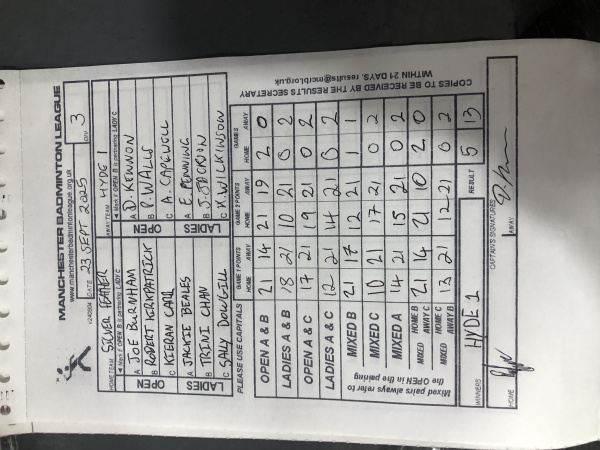 MANCHESTER BADMINTON LEAGUE
www.manchesterbadmintonleague.org.uk
v240904 DATE 23 SEPT 2025 DIV 3
HOME TEAM SILVER FEATHER AWAY TEAM HYDE 1
◄ Mark if OPEN B is partnering LADY C ◄ Mark if OPEN B is partnering LADY C
OPEN A JOE BURNHAM OPEN A D. KENNON
B ROBERT KIRKPATRICK B P. WALLS
C KIERAN CARR C A. CAPEWELL
LADIES A JACKIE BEALES LADIES A E. PENNING
B TRINI CHAN B J. JACKSON
C SALLY DOWGILL C K. WILKINSON
PLEASE USE CAPITALS GAME 1 POINTS GAME 2 POINTS GAMES
HOME AWAY HOME AWAY HOME AWAY
OPEN A & B 21 14 21 19 2 0
LADIES A & B 18 21 10 21 0 2
OPEN A & C 17 21 19 21 0 2
LADIES A & C 12 21 14 21 0 2
MIXED B 21 17 12 21 1 1
MIXED C 10 21 17 21 0 2
MIXED A 14 21 15 21 0 2
MIXED HOME B AWAY C 21 14 21 10 2 0
MIXED HOME C AWAY B 13 21 12 21 0 2
Mixed pairs always refer to
the OPEN in the pairing
WINNERS HYDE 1 RESULT 5 13
CAPTAINS SIGNATURES
HOME AWAY
COPIES TO BE RECEIVED BY THE RESULTS SECRETARY
WITHIN 21 DAYS. results@mcrbl.org.uk